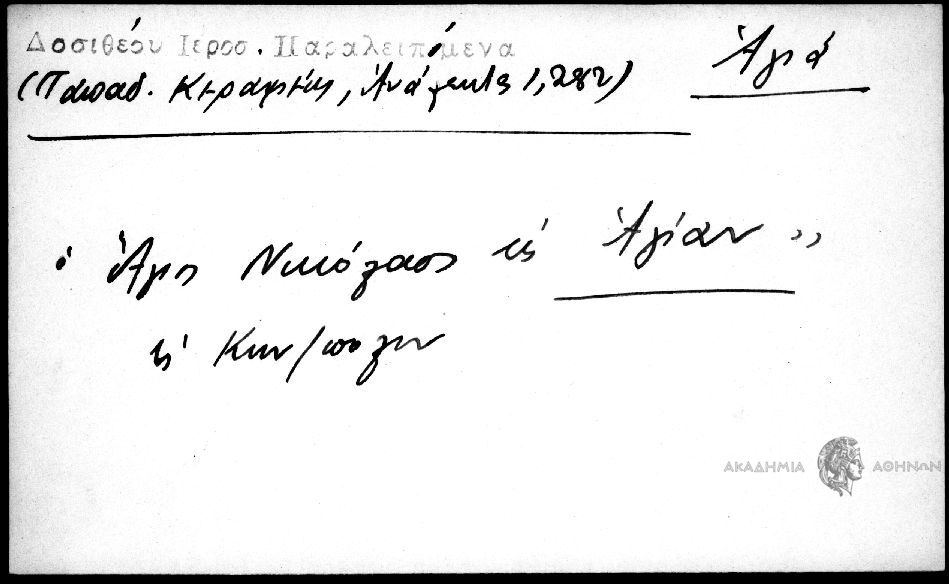 Δοσιθέου Ιεροσ. Παραλειπόμενα
(Παπαδ. Κεραμεύς, Ἀνάλεκτα 1, 282)
Ἁγιά
ὁ Ἅγιος Νικόλαος εἰς Ἁγίαν ,,
εἰς Κων/πολιν
ΑΚΑΔΗΜΙΑ ΑΘΗΝΩΝ